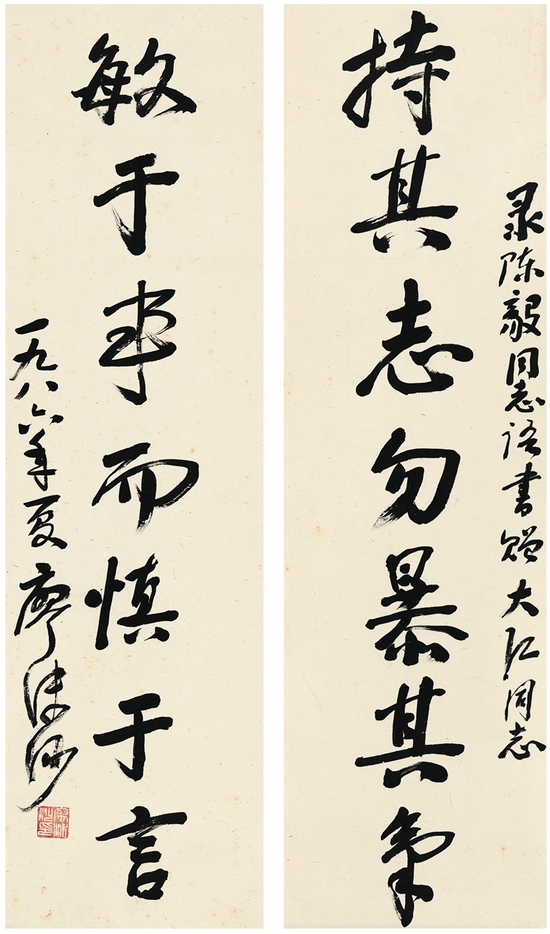 录陈毅同志语書赠大同志
持其志勿暴其氣
敏于事而慎于言
一九八六年夏廖沫沙